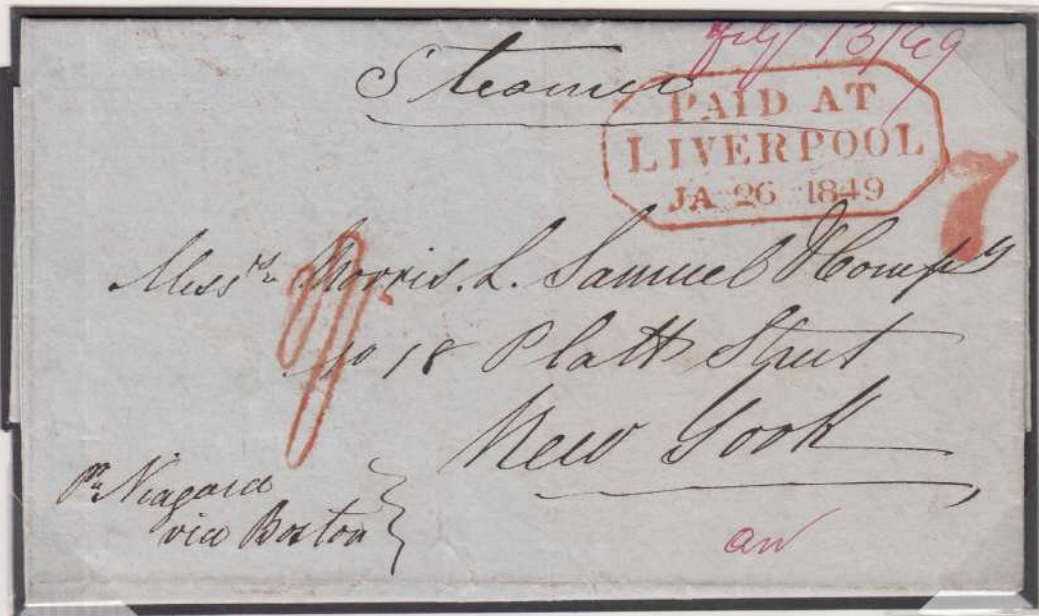 Feby 13/49
Steamer
PAID AT
LIVERPOOL
JA 26 1849
7
Messrs Morris. L. Samuel & Compy
No 18 Platt Street
New York
Pr Niagara
via Boston